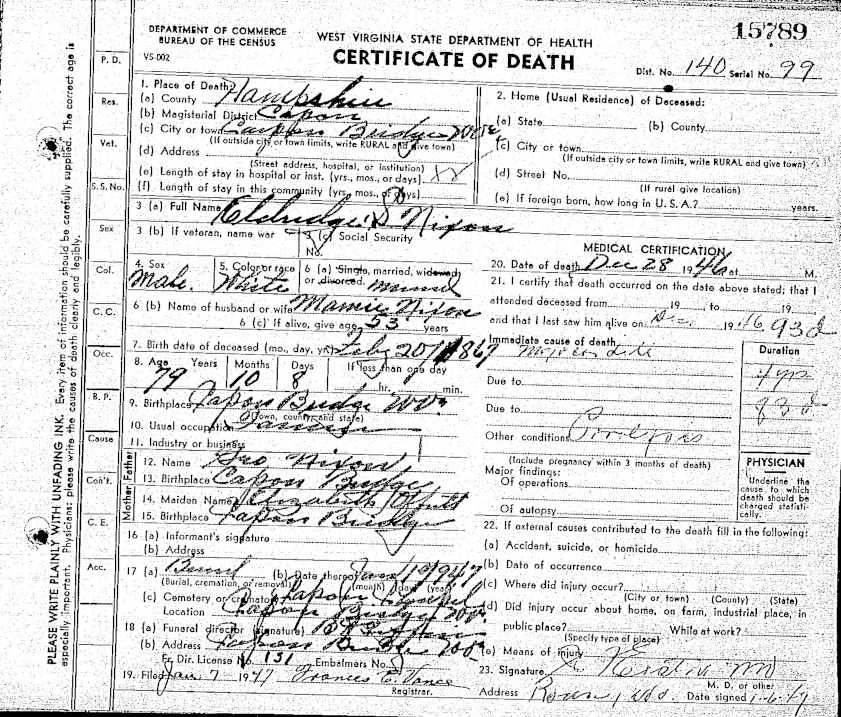 15789
DEPARTMENT OF COMMERCE
BUREAU OF THE CENSUS
VS-002
WEST VIRGINIA STATE DEPARTMENT OF HEALTH
CERTIFICATE OF DEATH
Dist. No. 140 Serial No. 99
PLEASE WRITE PLAINLY WITH UNFADING INK. Every item of information should be carefully supplied. The correct age is
especially important. Physicians: please write the causes of death clearly and legibly.
P. D.
Res.
Vet.
S. S. No.
Sex
Col.
C. C.
Occ.
B. P.
Cause
Con't.
C. E.
Acc.
1. Place of Death:
(a) County Hampshire
(b) Magisterial District Capon
(c) City or town Capon Bridge
(If outside city or town limits, write RURAL and give town)
(d) Address
(Street address, hospital, or institution)
(e) Length of stay in hospital or inst. (yrs., mos., or days)
(f) Length of stay in this community (yrs., mos., or days)
2. Home (Usual Residence) of Deceased:
(a) State (b) County
(c) City or town
(If outside city or town limits, write RURAL and give town)
(d) Street No.
(If rural give location)
(e) If foreign born, how long in U. S. A.? years.
3 (a) Full Name Eldridge Nixon
3 (b) If veteran, name war 3 (c) Social Security
No.
4. Sex 5. Color or race 6 (a) Single, married, widowed,
or divorced. Married
Male White
6 (b) Name of husband or wife Mamie Nixon
6 (c) If alive, give age 53 years
7. Birth date of deceased (mo., day, yr.) Feby 20 1867
8. Age Years Months Days If less than one day
79 10 8 hr. min.
9. Birthplace Capon Bridge
(Town, county, and state)
10. Usual occupation Farmer
11. Industry or business
Father
12. Name Geo Nixon
13. Birthplace Capon Bridge
Mother
14. Maiden Name Elizabeth
15. Birthplace Capon Bridge
16 (a) Informant's signature
(b) Address
17 (a) Burial (b) Date thereof Jan 1 1947
(Burial, cremation, or removal) (month) (day) (year)
(c) Cemetery or crematory Capon Chapel
Location Capon Bridge
18 (a) Funeral director (signature)
(b) Address Capon Bridge
Fr. Dir. License N. 151 Embalmers No.
19. Filed Jan 7 1947 Frances E. Vance
Registrar.
MEDICAL CERTIFICATION
20. Date of death Dec 28 1946 at M.
21. I certify that death occurred on the date above stated; that I
attended deceased from 19 , to 19
and that I last saw him alive on Dec 1946
Immediate cause of death Duration
Due to
Due to
Other conditions
(Include pregnancy within 3 months of death)
Major findings:
Of operations
Of autopsy
PHYSICIAN
Underline the cause to which death should be charged statistically.
22. If external causes contributed to the death fill in the following:
(a) Accident, suicide, or homicide
(b) Date of occurrence
(c) Where did injury occur?
(City or town) (County) (State)
(d) Did injury occur about home, on farm, industrial place, in
public place? While at work?
(Specify type of place)
(e) Means of injury
23. Signature MD
M. D. or other
Address Date signed 1-6-47